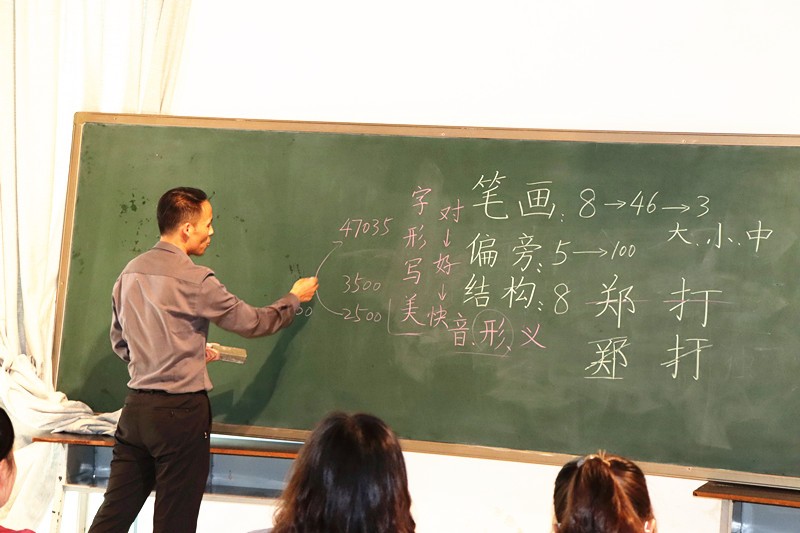 47035
3500
2500
字形写美
对↓好↓快
音.形.义
笔画:8→46→3
大.小.中
偏旁:5→100
结构:8
郑 打
郑 打